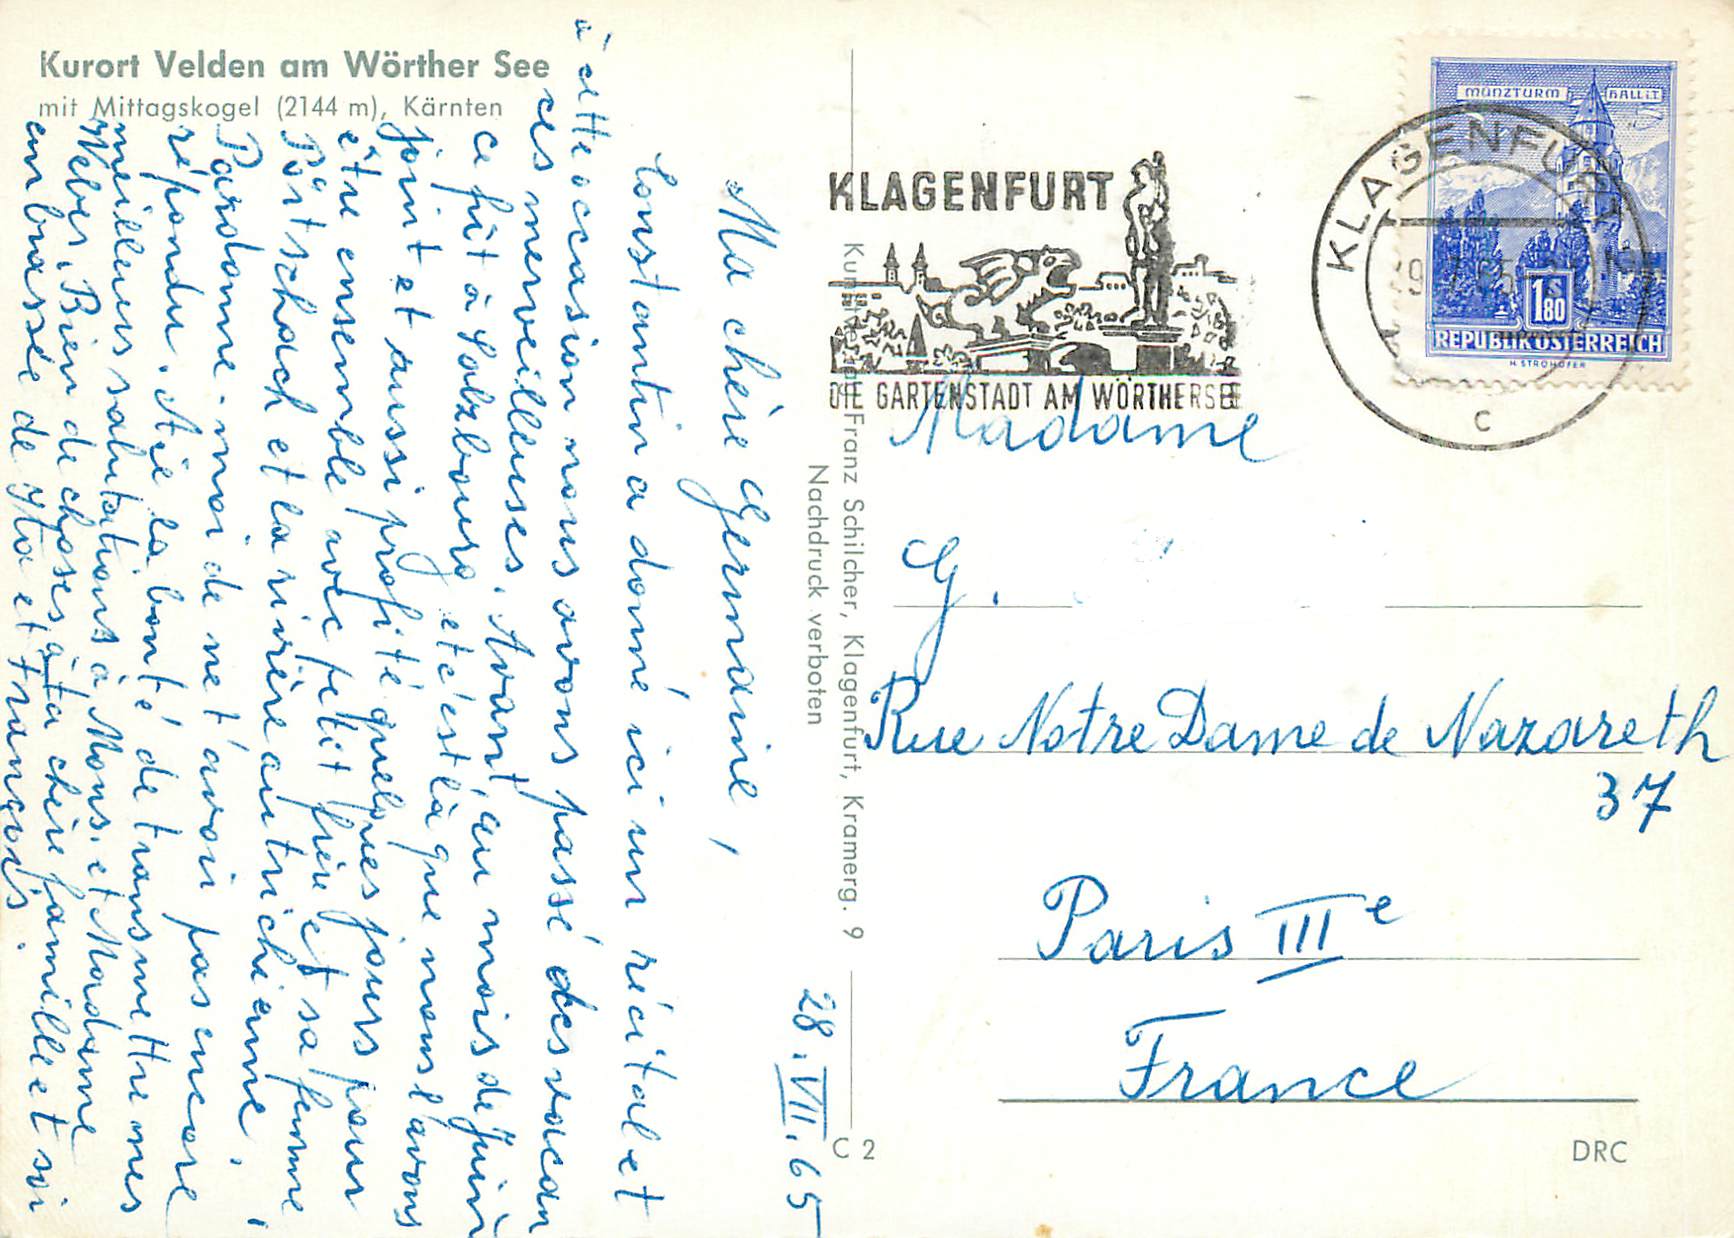 Kurort Velden am Wörther See
mit Mittagskogel (2144 m), Kärnten
28.VII.65
Ma chère Germaine,
Constantin a donné ici un récital et
à cette occasion nous avons passé des vacan
ces merveilleuses. Avant, au mois de Juin
ce fût à Salzbourg et c'est là que nous l'avons
joint et aussi profité quelques jours pour
être ensemble avec petit frère et sa femme
Pörtschach et la rivière autrichienne,
Pardonne-moi de ne t'avoir pas encore
répondu. Aie la bonté de transmettre mes
meilleurs salutations à Mons. et Madame
Weber. Bien de choses à ta chère famille et soi
embrassée de Ita et François.
Kunstverlag Franz Schilcher, Klagenfurt, Kramerg. 9
Nachdruck verboten
C 2
KLAGENFURT
DIE GARTENSTADT AM WÖRTHERSEE
MÜNZTURM
HALL i.T.
1 S
80
REPUBLIK ÖSTERREICH
H. STROHOFER
KLAGENFURT 2
65
C
Madame
G.
Rue Notre Dame de Nazareth
37
Paris IIIe
France
DRC